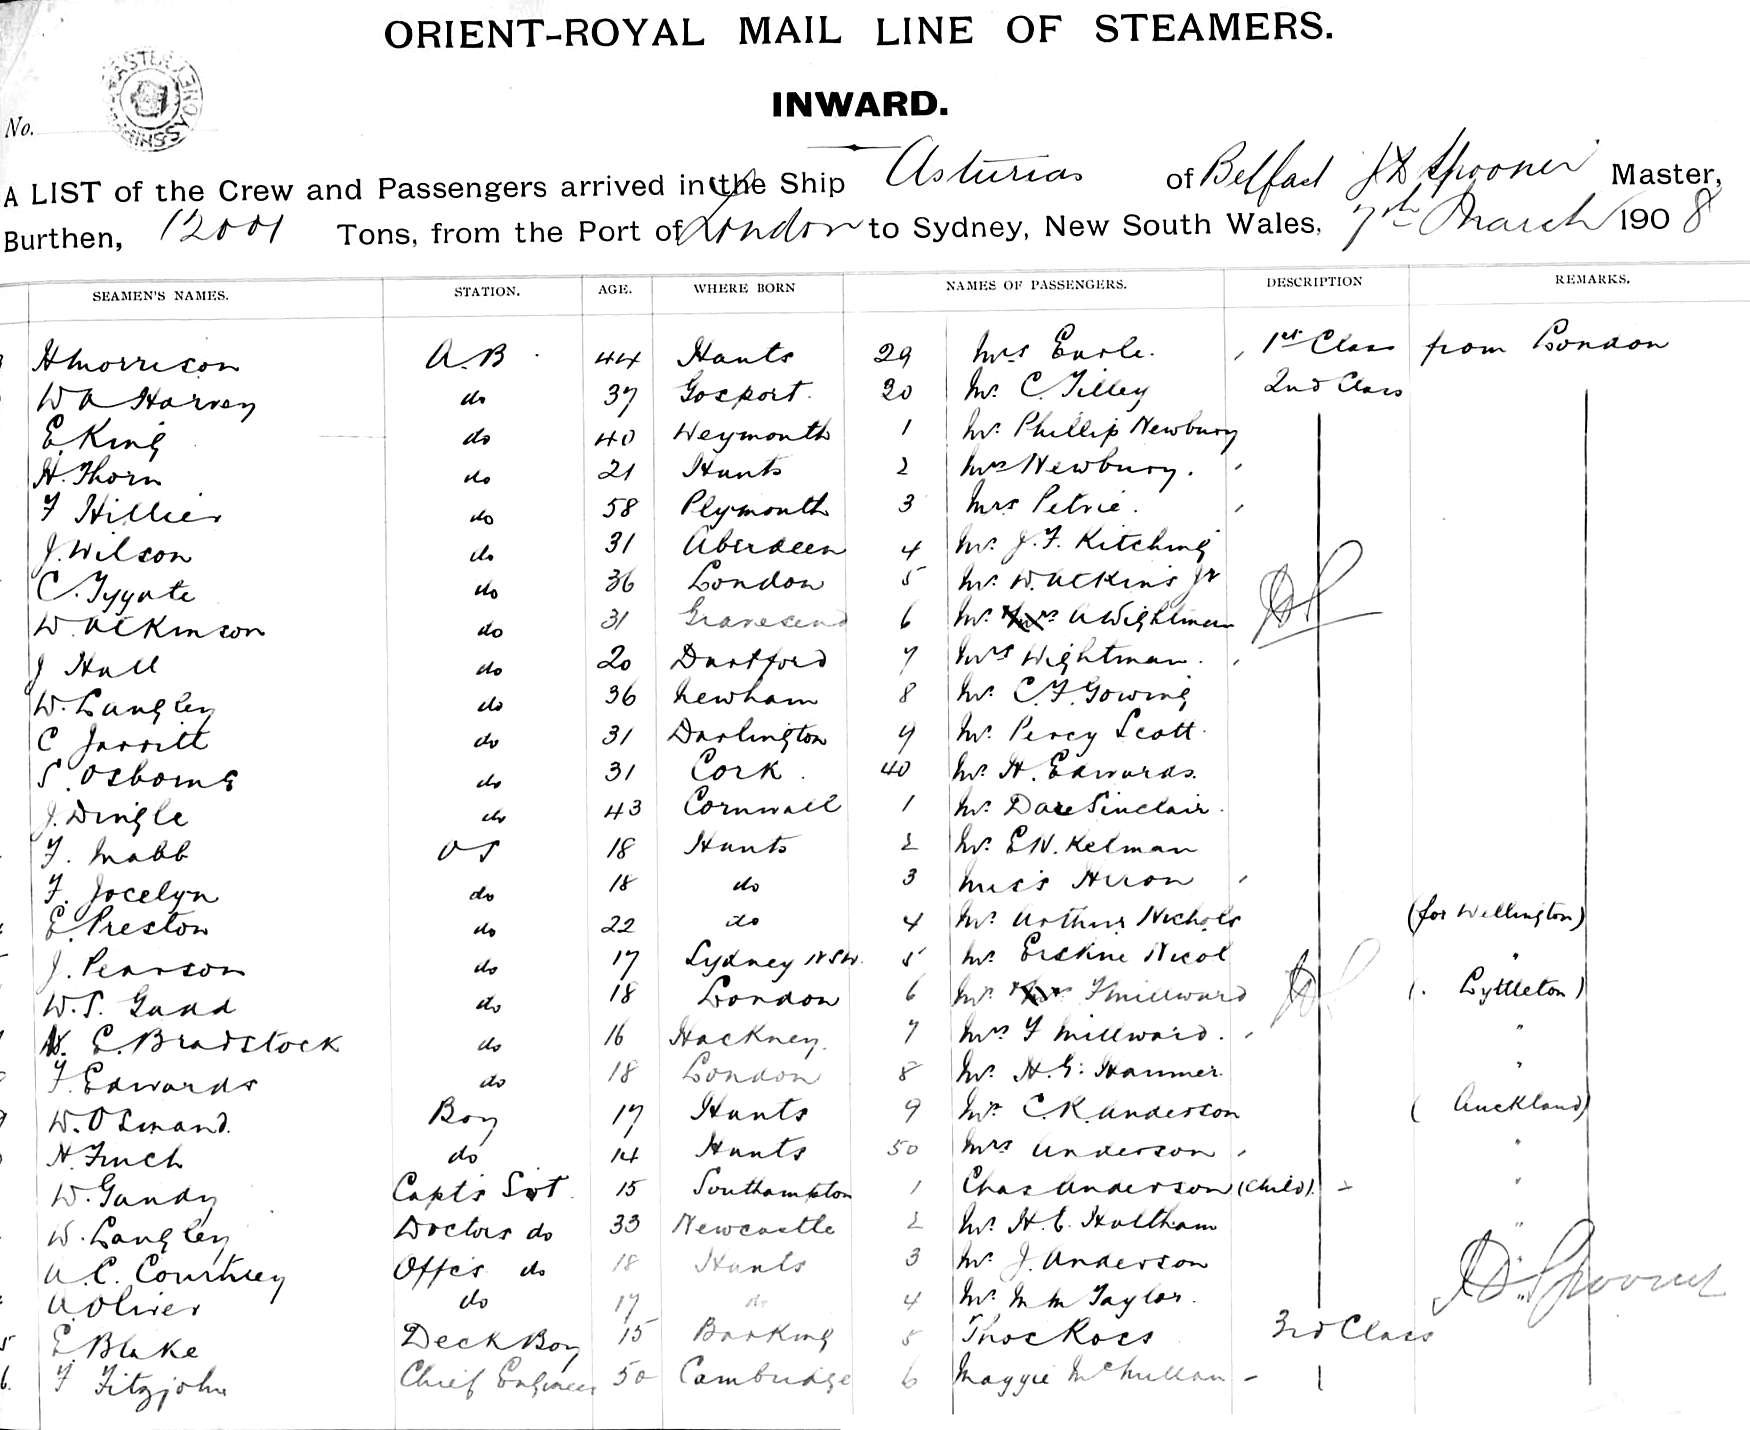 ORIENT-ROYAL MAIL LINE OF STEAMERS.
INWARD.
No.
A LIST of the Crew and Passengers arrived in the Ship Asturias of Belfast J D Spooner Master,
Burthen, 12001 Tons, from the Port of London to Sydney, New South Wales, 7th March 1908
SEAMEN'S NAMES. STATION. AGE. WHERE BORN NAMES OF PASSENGERS. DESCRIPTION REMARKS.
H Morrison A.B 44 Hants 29 Mrs Earle. 1st Class from London
W A Harvey do 37 Gosport. 30 Mr. C. Tilley 2nd Class
E. King do 40 Weymouth 1 Mr. Phillip Newbury
H. Thorn do 21 Hants 2 Mrs Newbury.
F Hillier do 58 Plymouth 3 Mrs Petrie.
J. Wilson do 31 Aberdeen 4 Mr. J. F. Kitching
C. Tygate do 36 London 5 Mr. W. Atkins Jr
W. Atkinson do 31 Gravesend 6 Mr. A Wightman
J Hall do 20 Dartford 7 Mrs Wightman.
W. Langley do 36 Newham 8 Mr. C. F. Gowing
C Jarritt do 31 Darlington 9 Mr. Percy Scott.
S. Osborne do 31 Cork. 40 Mr. H. Edwards.
J. Dingle do 43 Cornwall 1 Mr. Dare Sinclair.
F. Mabb OS 18 Hants 2 Mr. E N. Kelman
F. Jocelyn do 18 do 3 Miss Hiron
E. Preston do 22 do 4 Mr. Arthur Nichols (for Wellington)
J. Pearson do 17 Sydney NSW. 5 Mr. Erskine Nicol "
W. S. Gadd do 18 London 6 Mr. F Millward (. Lyttleton)
E. Bradstock do 16 Hackney. 7 Mrs F Millward. "
F. Edwards do 18 London 8 Mr. H. G. Hanmer. "
W. Osmand. Boy 17 Hants 9 Mr. C. K. Anderson ( Auckland)
H. Finch do 14 Hants 50 Mrs Anderson "
W. Gandy Capts Svt. 15 Southampton 1 Chas Anderson (child). "
W. Langley Doctors do 33 Newcastle 2 Mr. H. C. Haltham "
A. C. Courtney Offrs do 18 Hants 3 Mr. J. Anderson
A. Oliver do 17 do 4 Mr. M M Taylor. J D. Spooner
E. Blake Deck Boy 15 Barking 5 Thos Ross 3rd Class
F Fitzjohn Chief Engineer 50 Cambridge 6 Maggie McMullan